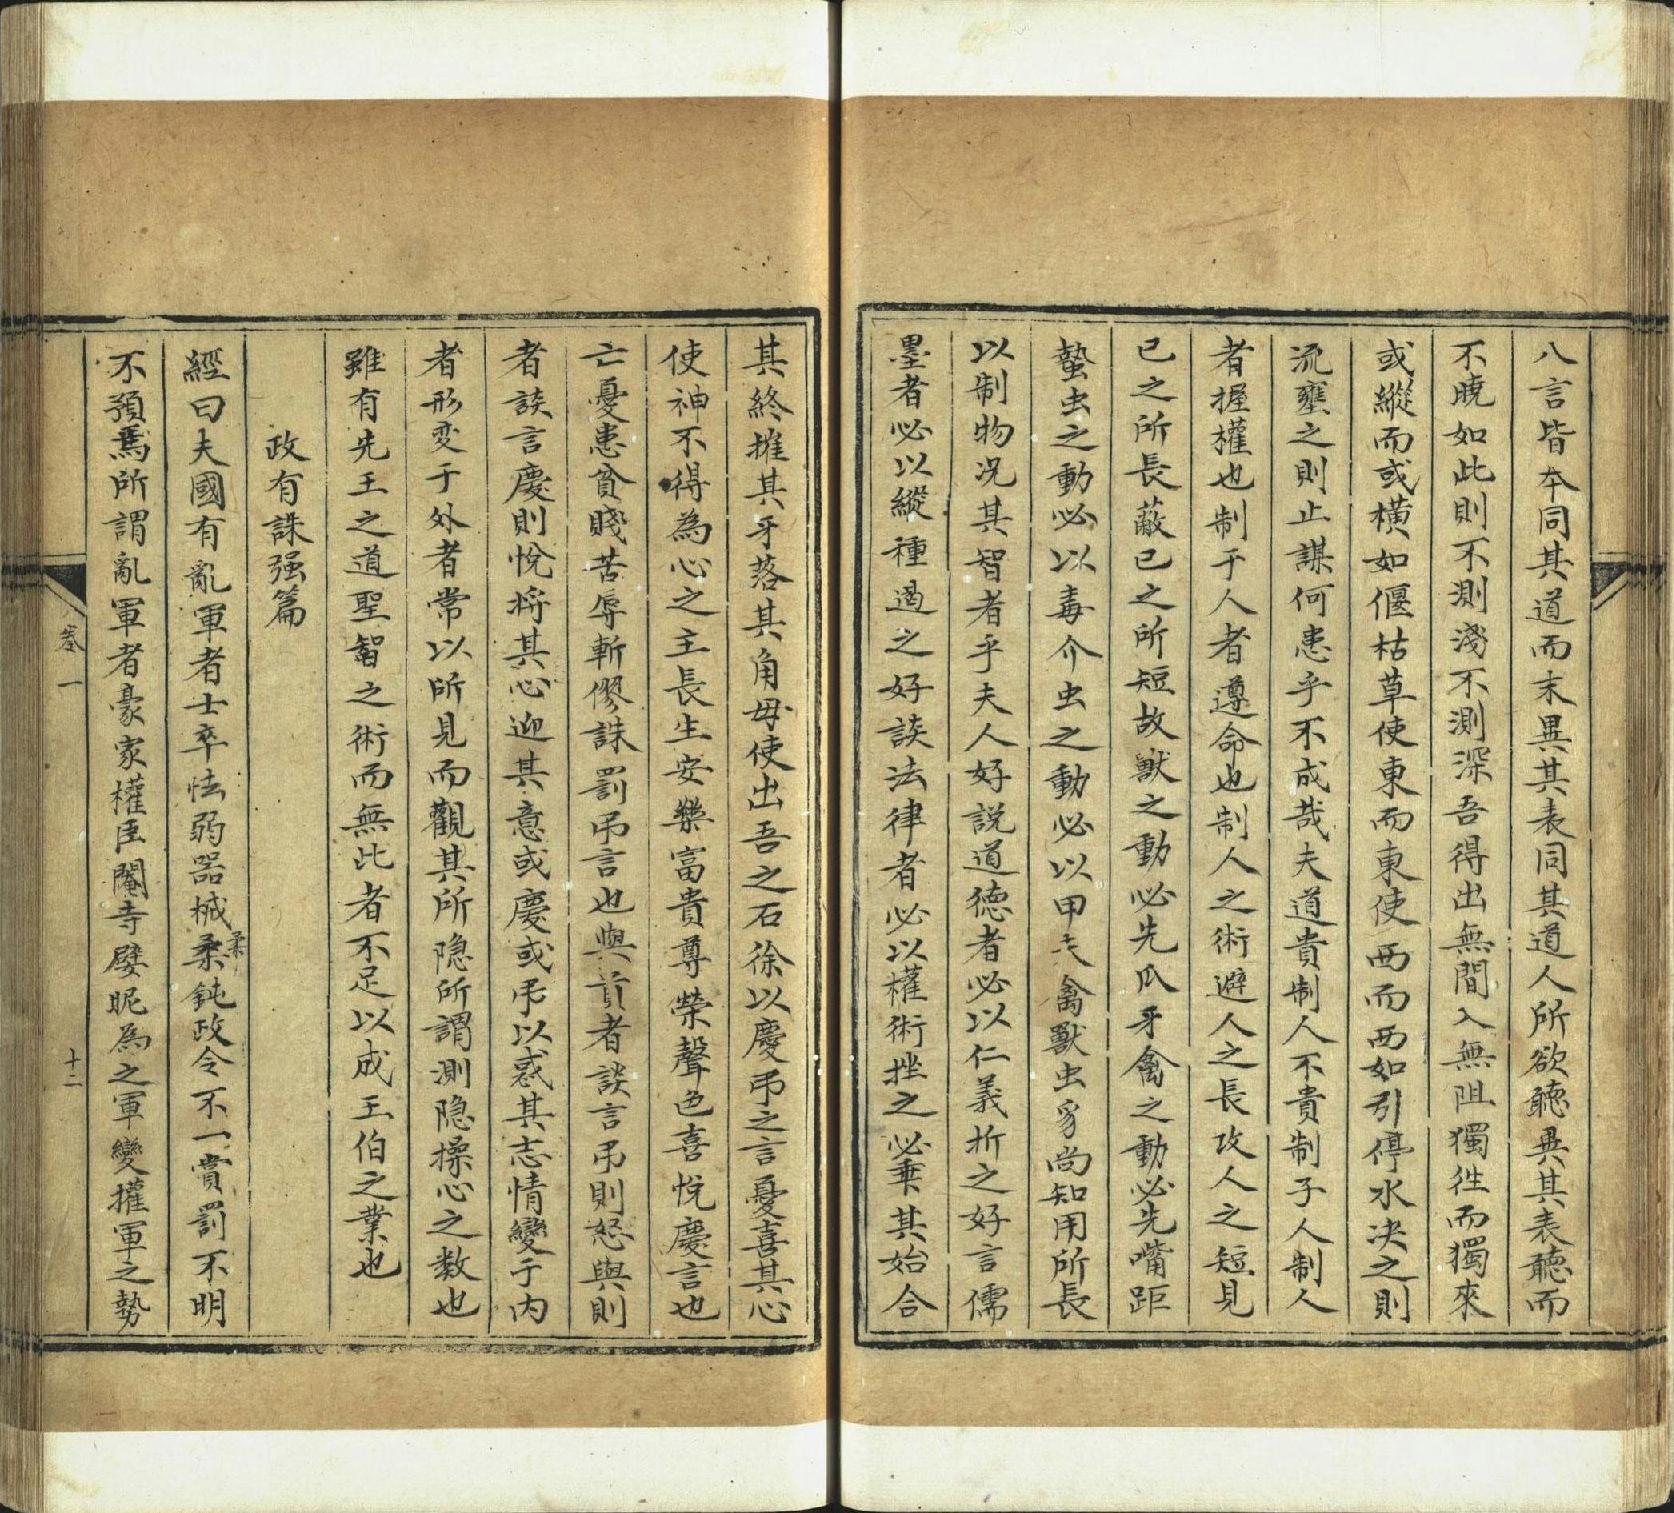 八言皆本同其道而末異其表同其道人所欲聽異其表聽而
不曉如此則不測淺不測深吾得出無間入無阻獨徃而獨來
或縱而或橫如偃枯草使東而東使西而西如引停水决之則
流壅之則止謀何患乎不成哉夫道貴制人不貴制于人制人
者握權也制于人者遵命也制人之術避人之長攻人之短見
已之所長蔽已之所短故獸之動必先爪牙禽之動必先嘴距
螫虫之動必以毒介虫之動必以甲夫禽獸虫豸尚知用所長
以制物况其智者乎夫人好説道德者必以仁義折之好言儒
墨者必以縱種遏之好談法律者必以權術挫之必乗其始合
其終摧其牙落其角毋使出吾之石徐以慶弔之言憂喜其心
使神不得為心之主長生安樂富貴尊榮聲色喜悅慶言也
亡憂患貧賤苦辱斬僇誅罰弔言也與貴者談言弔則怒與則
者談言慶則悅將其心迎其意或慶或弔以惑其志情變于内
者形変于外者常以所見而觀其所隐所謂測隐操心之数也
雖有先王之道聖智之術而無此者不足以成王伯之業也
政有誅强篇
經曰夫國有亂軍者士卒怯弱器械柔鈍政令不一賞罰不明
柔
不預焉所謂亂軍者豪家權臣閹寺嬖昵為之軍變權軍之勢
卷一
十二